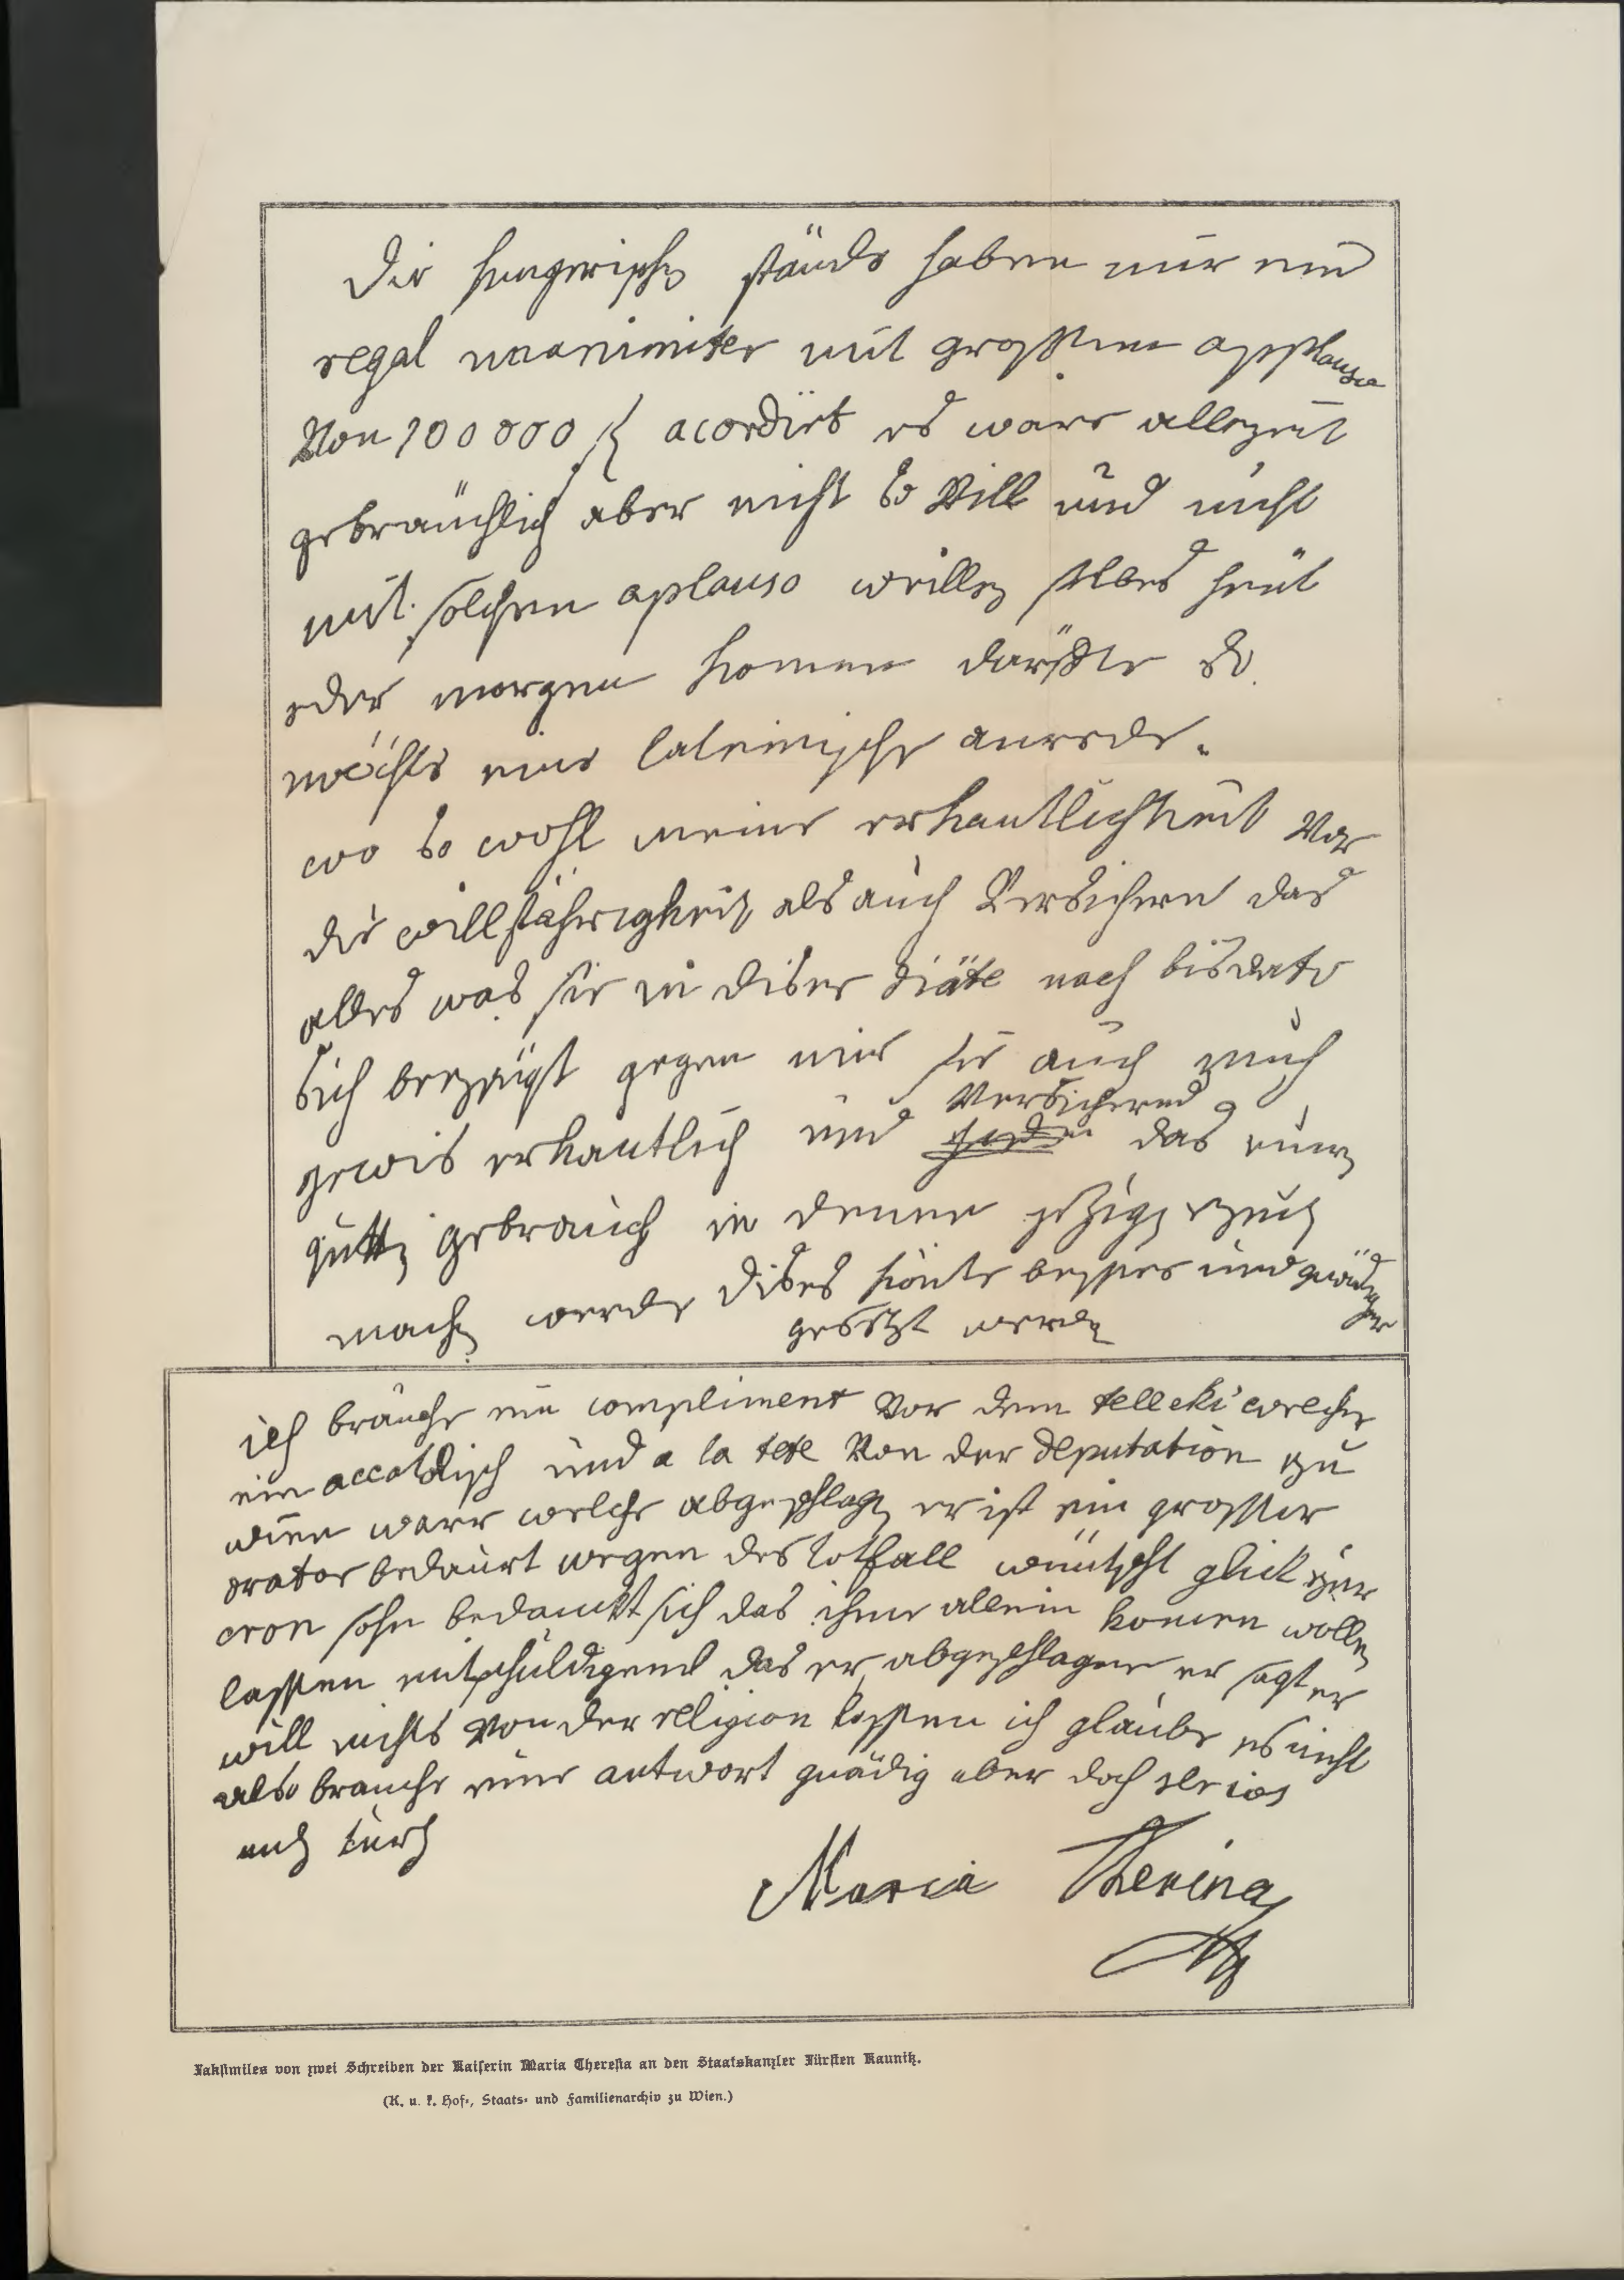 die hungerische stände haben mir ein
regal unanimiter mit grossem applauso
Von 100000 f acordirt es ware allezeit
gebräuchlich aber nicht so Vill und nicht
mit solchem aplauso weillen selbes heut
oder morgen komen darffte so
möchte eine lateinische anrede.
wo so wohl meine erkantlichkeit Vor
die willfährigkeit als auch Versichern das
alles was sie in diser diäte noch bis dato
sich bezeügt gegen mir sie auch mich
gewis erkantlich und Versichered das einen
gutten gebrauch in denen jezigen zeiten
machen werde dises könte besser und gnädiger
gesetzt werden
ich brauche ein compliment Vor dem telleki welcher
ein accatolisch und a la tete Von der deputation zu
wien ware welche abgeschlagen er ist ein grosser
orator bedaurt wegen des totfall wüntscht glick zur
cron sohn bedanckt sich das ihme allein komen wollen
lassen entschuldigend das er abgeschlagen er sagt er
will nichts Von der religion lassen ich glaube es nicht
also brauche eine antwort gnädig aber doch serios
und kurz
Maria Theresia
Faksimiles von zwei Schreiben der Kaiserin Maria Theresia an den Staatskanzler Fürsten Kaunitz.
(K. u. k. Hof-, Staats- und Familienarchiv zu Wien.)